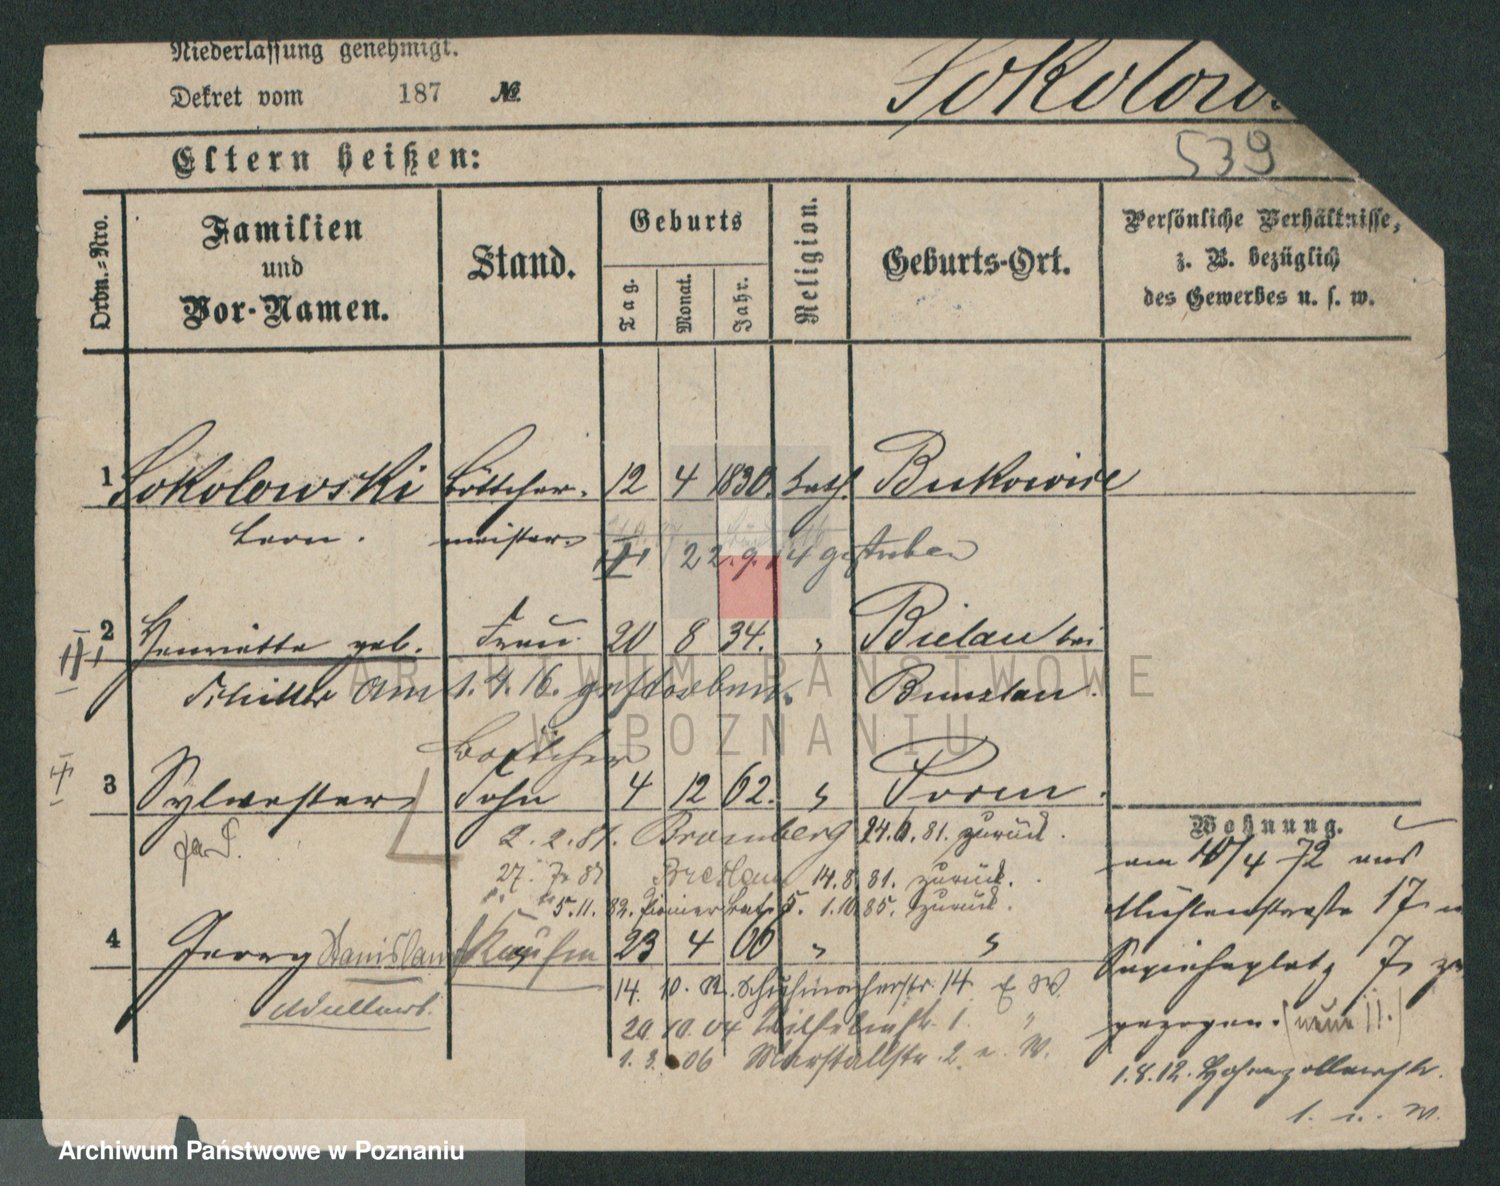 Niederlassung genehmigt.
Dekret vom 187 №
Sokolow
539
Eltern heißen:
Ordn.-Nro.
Familien
und
Vor-Namen.
Stand.
Geburts
Tag.
Monat.
Jahr.
Religion.
Geburts-Ort.
Persönliche Verhältnisse,
z. B. bezüglich
des Gewerbes u. s. w.
1 Sokolowski Böttcher- 12 4 1830. kath. Bukowiec
Leon. meister
22.9.14 gestorben
2 Henriette geb. Frau 20 8 34. " Bielau bei
Schiller am 1.4.16. gestorben. Bunzlau.
Boettcher
3 Sylwester Sohn 4 12 62. " Posen.
2.2.81. Bromberg 24.6.81. zurück.
Breslau 14.8.81. zurück.
5.11.82. 1.10.85. zurück.
4 Georg Stanislaus Kaufm 23 4 66 " "
14. 10. Schuhmacherstr. 14
20 10 04 Wilhelmstr. 1. "
1. 3. 06 Marstallstr. 2.
Wohnung.
am 10/4 72 aus
Mühlenstraße 17
Sapiehaplatz 7
gezogen. (neue 11.)
1.8.12. Hohenzollernstr.
ARCHIWUM PAŃSTWOWE
W POZNANIU
Archiwum Państwowe w Poznaniu